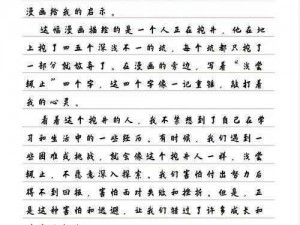 漫画给我的启示。
这幅漫画描绘的是一个人正在挖井，他在地
上挖了四五个深浅不一的坑，每个坑都只挖了
一部分就放弃了。在漫画的旁边，写着“浅尝
辄止”四个字，这四个字像一记重锤，敲打着
我的心灵。
看着这个挖井的人，我不禁想到了自己在学
习和生活中的一些经历。有时候，我们遇到一
些困难或挑战，就会像这个挖井人一样，浅尝
辄止，不愿意深入探索。我们害怕付出努力后
得不到回报，害怕面对失败和挫折，但是，正
是这种害怕和逃避，让我们错过了许多成长和